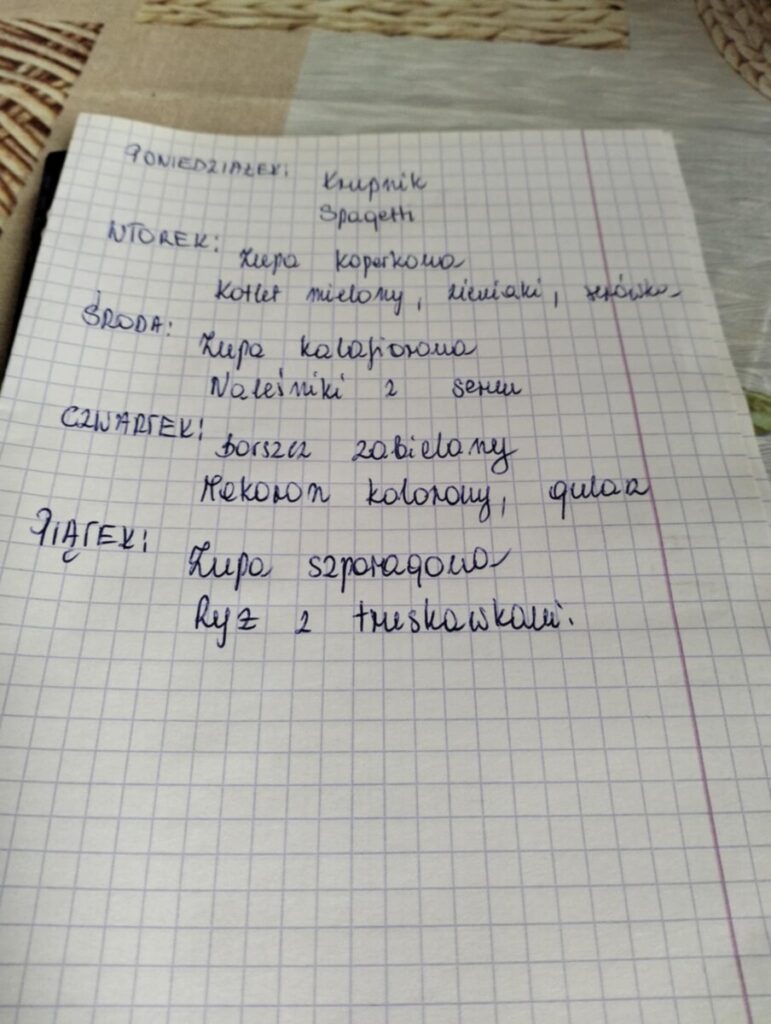 PONIEDZIAŁEK:
Krupnik
Spagetti
WTOREK:
Zupa koperkowa
Kotlet mielony, ziemniaki,
ŚRODA:
Zupa kalafiorowa
Naleśniki z serem
CZWARTEK:
Barszcz zabielany
Makaron kolorowy, gulasz
PIĄTEK:
Zupa szparagowa
Ryż z truskawkami.